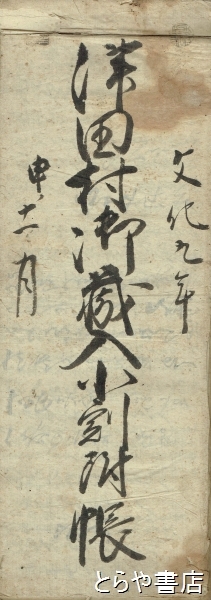 文化九年
津田村御蔵入小割附帳
申ノ十一月
とらや書店